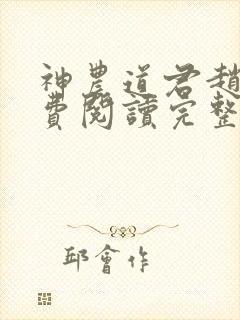 神農道君趙
費閱讀完整
邱會作